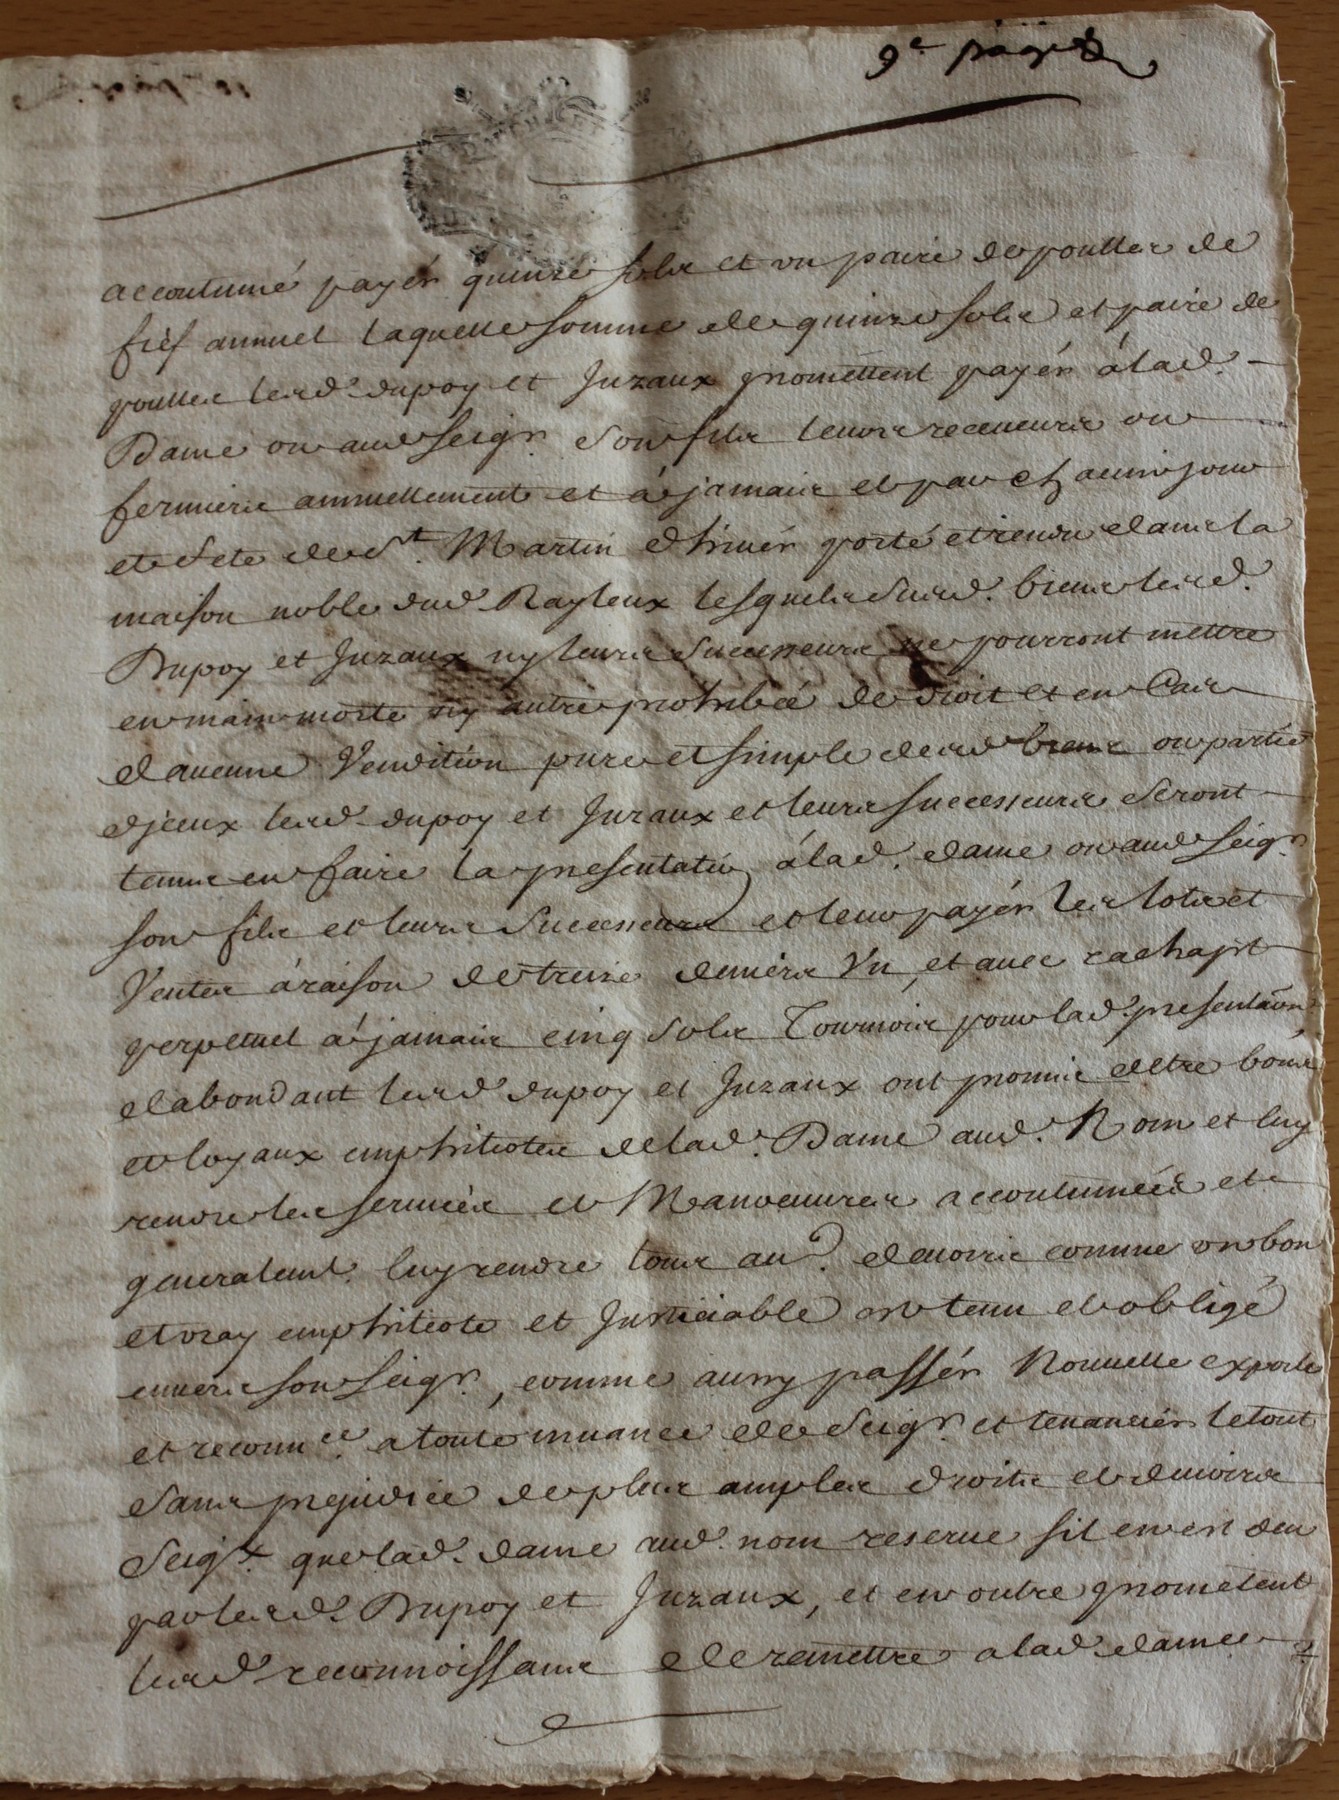 9e page
accoutumé payér quinze sols et un paire de poulles de
fiéf annuel laquelle somme de quinze sols et paire de
poulles lesd. dupoy et Juzaux promettent payér á lad.
Dame ou aud seigr. son fils leurs receveurs ou
fermiers annuellement et à jamais et par chacun jour
et fete de St. Martin dhivér porté et rendu dans la
maison noble dud Rayleux lesquels susd. biens lesd.
Dupoy et Juzaux ny leurs successeurs ne pourront mettre
en main morte ny autre prohibeé de droit et en Cas
daucune Vendition pure et simple desd biens ou partie
djceux lesd. dupoy et Juzaux et leurs successeurs seront
tenus en faire la presentatio á lad. dame ou aud seigr.
son fils et leurs successeurs et leur payér les lots et
Ventes á raison de treize deniers Vn, et avec rachapt
perpetuel à jamais cinq sols Tournois pour lad. presentaon.
dabondant lesd. dupoy et Juzaux ont promis detre bons
et loyaux emphiteotes de lad. Dame aud. Nom et luy
rendre les services et Manoeuvres accoutumées et
generalemt. luy rendre tous au. devoirs comme un bon
et vray emphiteote et Justiciable est tenu et obligé
envers son seigr., comme aussy passér Nouvelle exporle
et reconnce. a toute muance de Seigr. et tenanciér le tout
sans prejudice de plus amples droits et devoirs
Seigx. que lad. dame aud. nom reserve sil en est deu
par lesd. Dupoy et Juzaux, et en outre prometent
lesd. reconnoissans de remettre a lad. dame